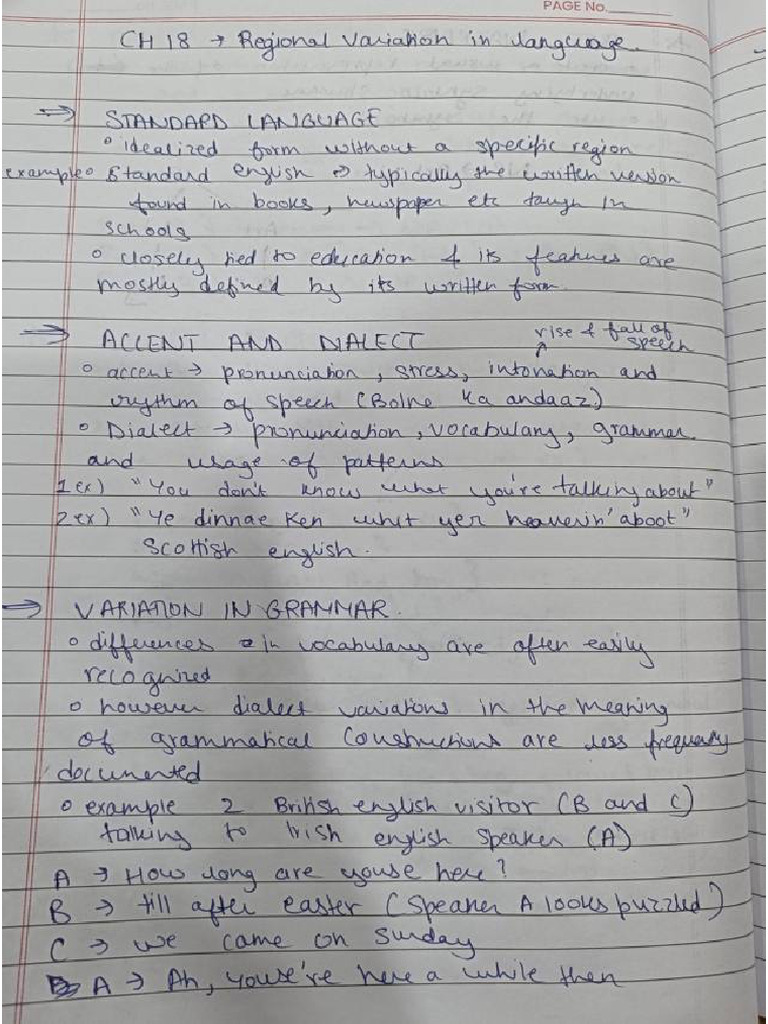 PAGE No.
CH 18 → Regional Variation in language.
⇒ STANDARD LANGUAGE
° idealized form without a specific region
example° Standard english → typically the written version
found in books, newspaper etc taugh in
schools
° closely tied to education & its features are
mostly defined by its written form.
⇒ ACCENT AND DIALECT
rise & fall of
speech
° accent → pronunciation, stress, intonation and
rhythm of speech (Bolne ka andaaz)
° Dialect → pronunciation, vocabulary, grammar
and usage of patterns
1 ex) "You don't know what you're talking about"
2 ex) "Ye dinnae Ken whit yer haverin' aboot"
Scottish english.
⇒ VARIATION IN GRAMMAR.
° differences in vocabulary are often easily
recognized
° however dialect variations in the meaning
of grammatical constructions are less frequently
documented
° example 2 British english visitor (B and C)
talking to Irish english speaker (A)
A → How long are youse here?
B → till after easter (Speaker A looks puzzled)
C → we came on Sunday
A → Ah, youse're here a while then